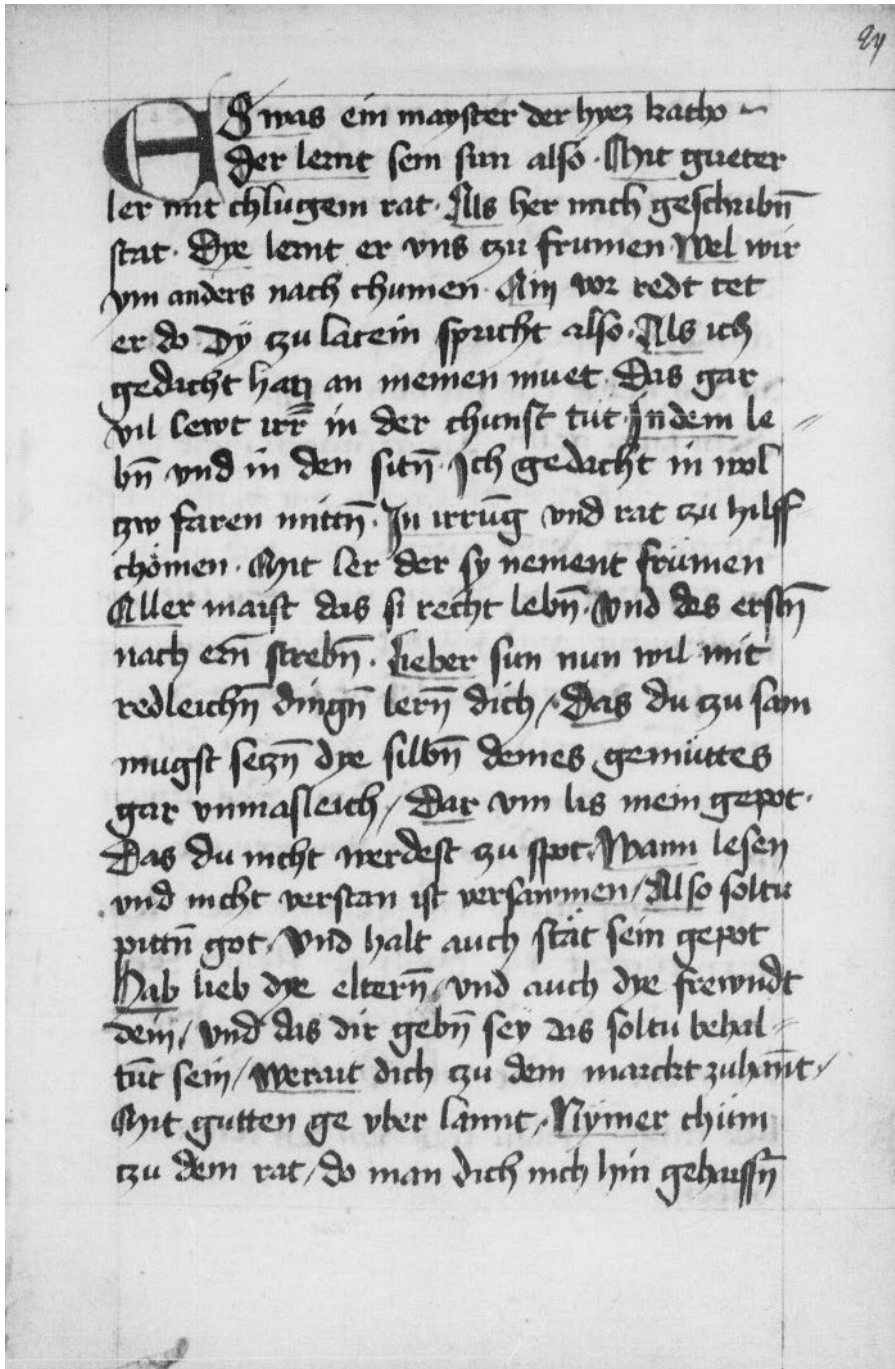 24
ES was ein mayster der hyez katho
der lernt sein sun also · Mit gueter
ler mit chlugem rat · Als her nach geschribn̄
stat · Dye lernt er vns tzu frumen Wel wir
ym anders nach chumen · Ain vor redt tet
er do Dÿ tzu latein spricht also · Als ich
gedacht hatz an meinen muet · Das gar
vil lewt irr̄ in der chunst tut · In dem le ⸗
bn̄ vnd in den sitn̄ · Ich gedacht in wol
tzw faren mittn̄ · In irrūg vnd rat tzu hilff
chömen · Mit ler der sy nement frümen
Aller maist das si recht lebn̄ · Vnd des erstn̄
nach ern̄ strebn̄ · Lieber sun nun wil mit
redleichn̄ dingn̄ lern̄ dich / Das du tzu sam
mugst setzn̄ dye silbn̄ deines gemüttes
gar vnmasleich / Dar vm lis mein gepot ·
Das du nicht werdest tzu spot · Wann lesen
vnd nicht verstan ist versawmen / Also soltu
pittn̄ got / Vnd halt auch stät sein gepot
Hab lieb dye eltern̄ / vnd auch dye frewndt
dein / vnd das dir gebn̄ sey das soltu behal ⸗
tūt sein / werait dich tzu dem marckt zuhān̄t /
Mit gutten ge vber lannt / Nÿmer chüm
tzu dem rat / do man dich nich hin gehaissn̄